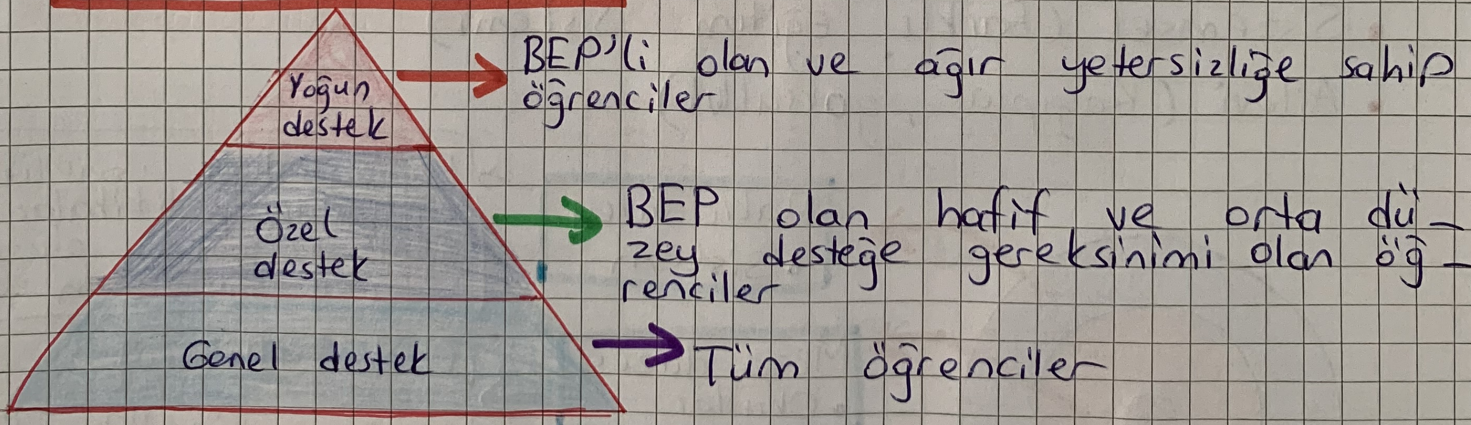 Yoğun
destek
BEP'li olan ve ağır yetersizliğe sahip
öğrenciler
Özel
destek
BEP olan hafif ve orta dü-
zey desteğe gereksinimi olan öğ-
renciler
Genel destek
Tüm öğrenciler